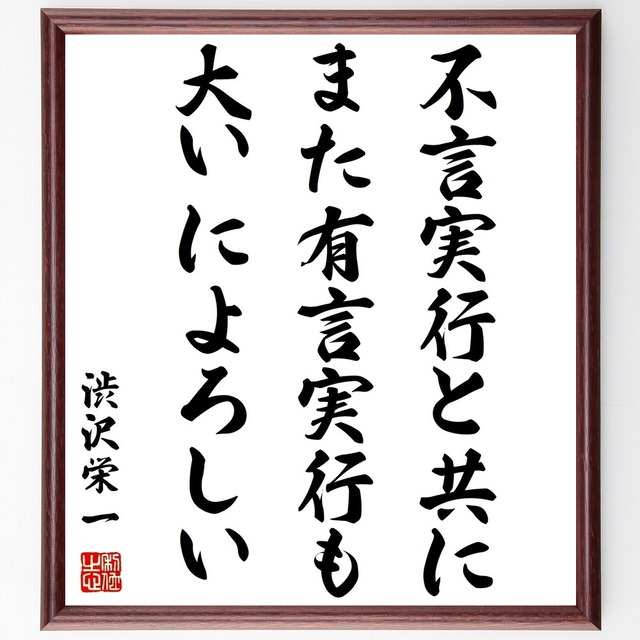 不言実行と共に
また有言実行も
大いによろしい
渋沢栄一